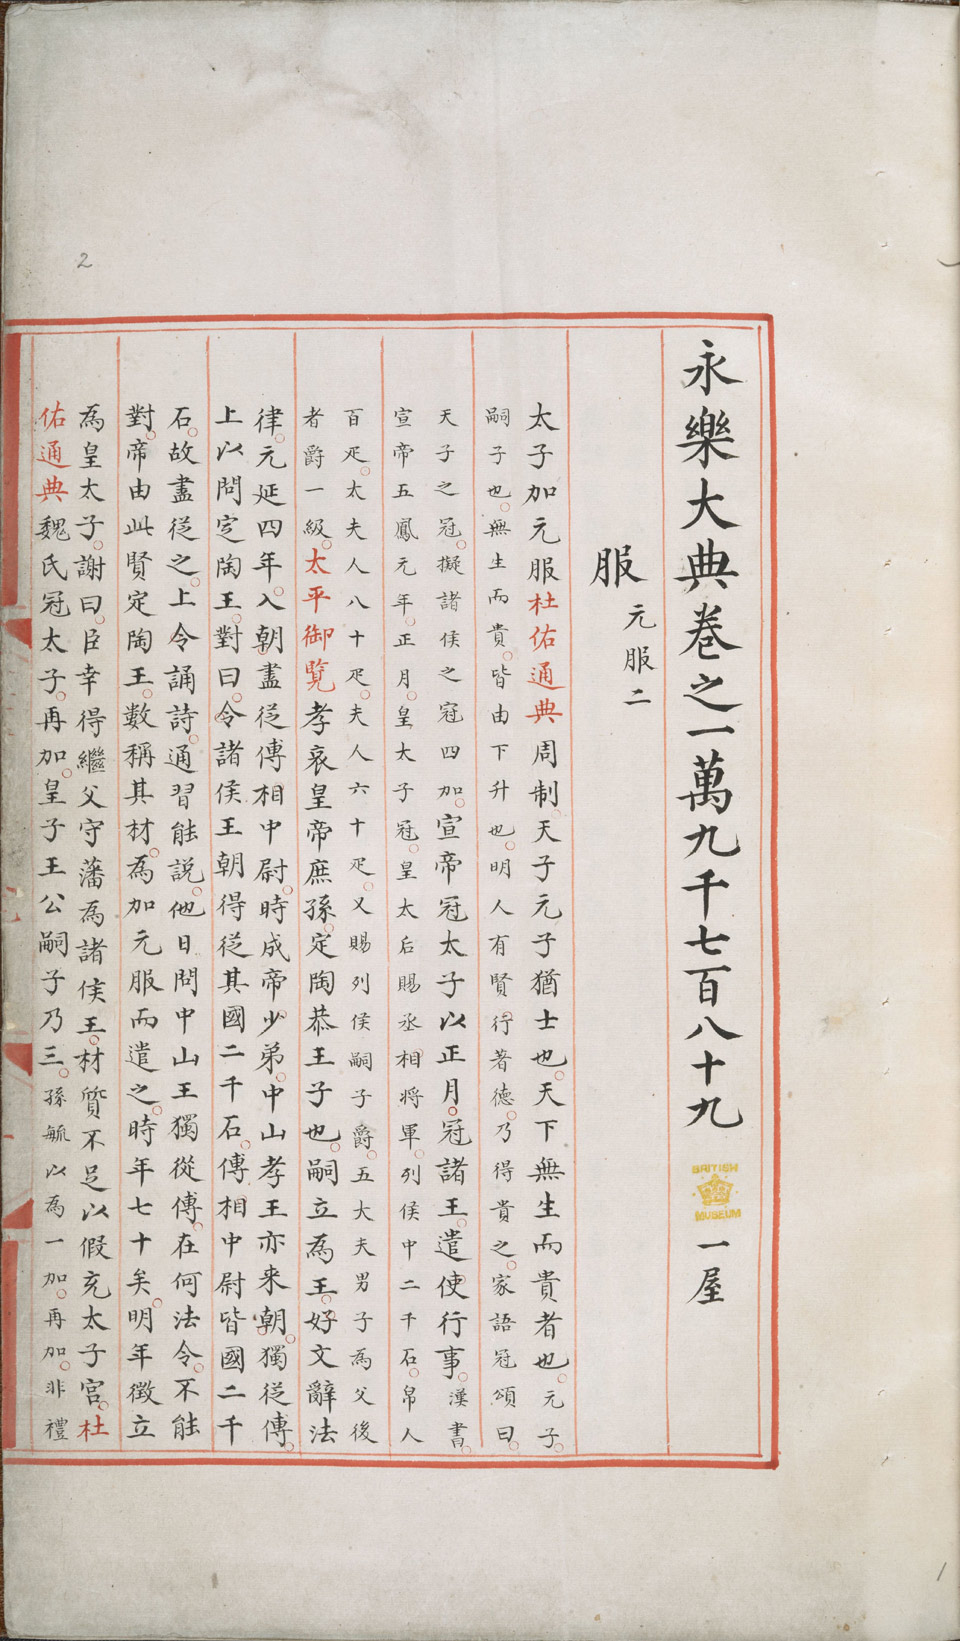 永樂大典卷之一萬九千七百八十九 一屋
BRITISH
MUSEUM
服 元服二
太子加元服杜佑通典周制天子元子猶士也天下無生而貴者也元子
嗣子也無生而貴皆由下升也明人有賢行著德乃得貴之家語冠頌曰
天子之冠擬諸侯之冠四加宣帝冠太子以正月冠諸王遣使行事漢書
宣帝五鳳元年正月皇太子冠皇太后賜丞相將軍列侯中二千石帛人
百疋太夫人八十疋夫人六十疋又賜列侯嗣子爵五大夫男子為父後
者爵一級太平御覽孝哀皇帝庶孫定陶恭王子也嗣立為王好文辭法
律元延四年入朝盡從傅相中尉時成帝少弟中山孝王亦来朝獨從傅
上以問定陶王對曰令諸侯王朝得從其國二千石傅相中尉皆國二千
石故盡從之上令誦詩通習能說他日問中山王獨從傅在何法令不能
對帝由此賢定陶王數稱其材為加元服而遣之時年七十矣明年徵立
為皇太子謝曰臣幸得繼父守藩為諸侯王材質不足以假充太子宮杜
佑通典魏氏冠太子再加皇子王公嗣子乃三孫毓以為一加再加非禮
2
1